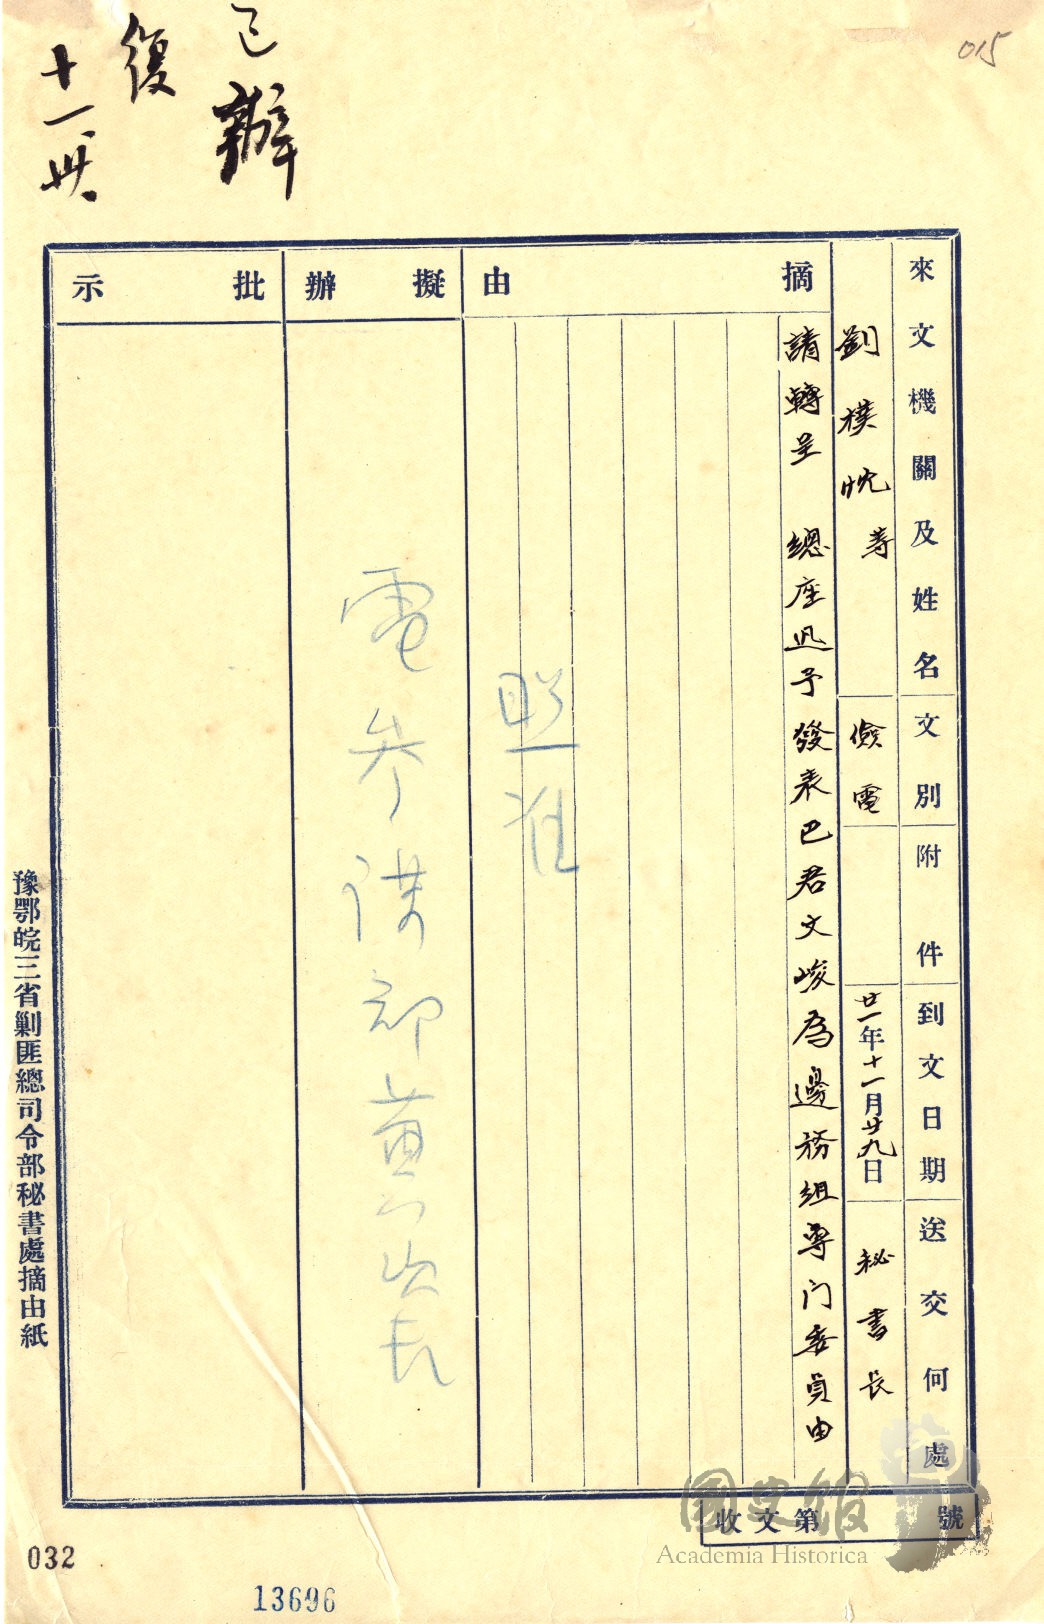 015
已辦
復
十一卅、
來文機關及姓名
文別
附件
到文日期
送交何處
劉樸忱等
儉電
廿一年十一月廿九日
秘書長
摘由
請轉呈 總座迅予發表巴君文峻為邊務組專門委員由
照准
擬辦
電參謀部黃次長
批示
豫鄂皖三省剿匪總司令部秘書處摘由紙
收文第 號
國史館
Academia Historica
032
13696